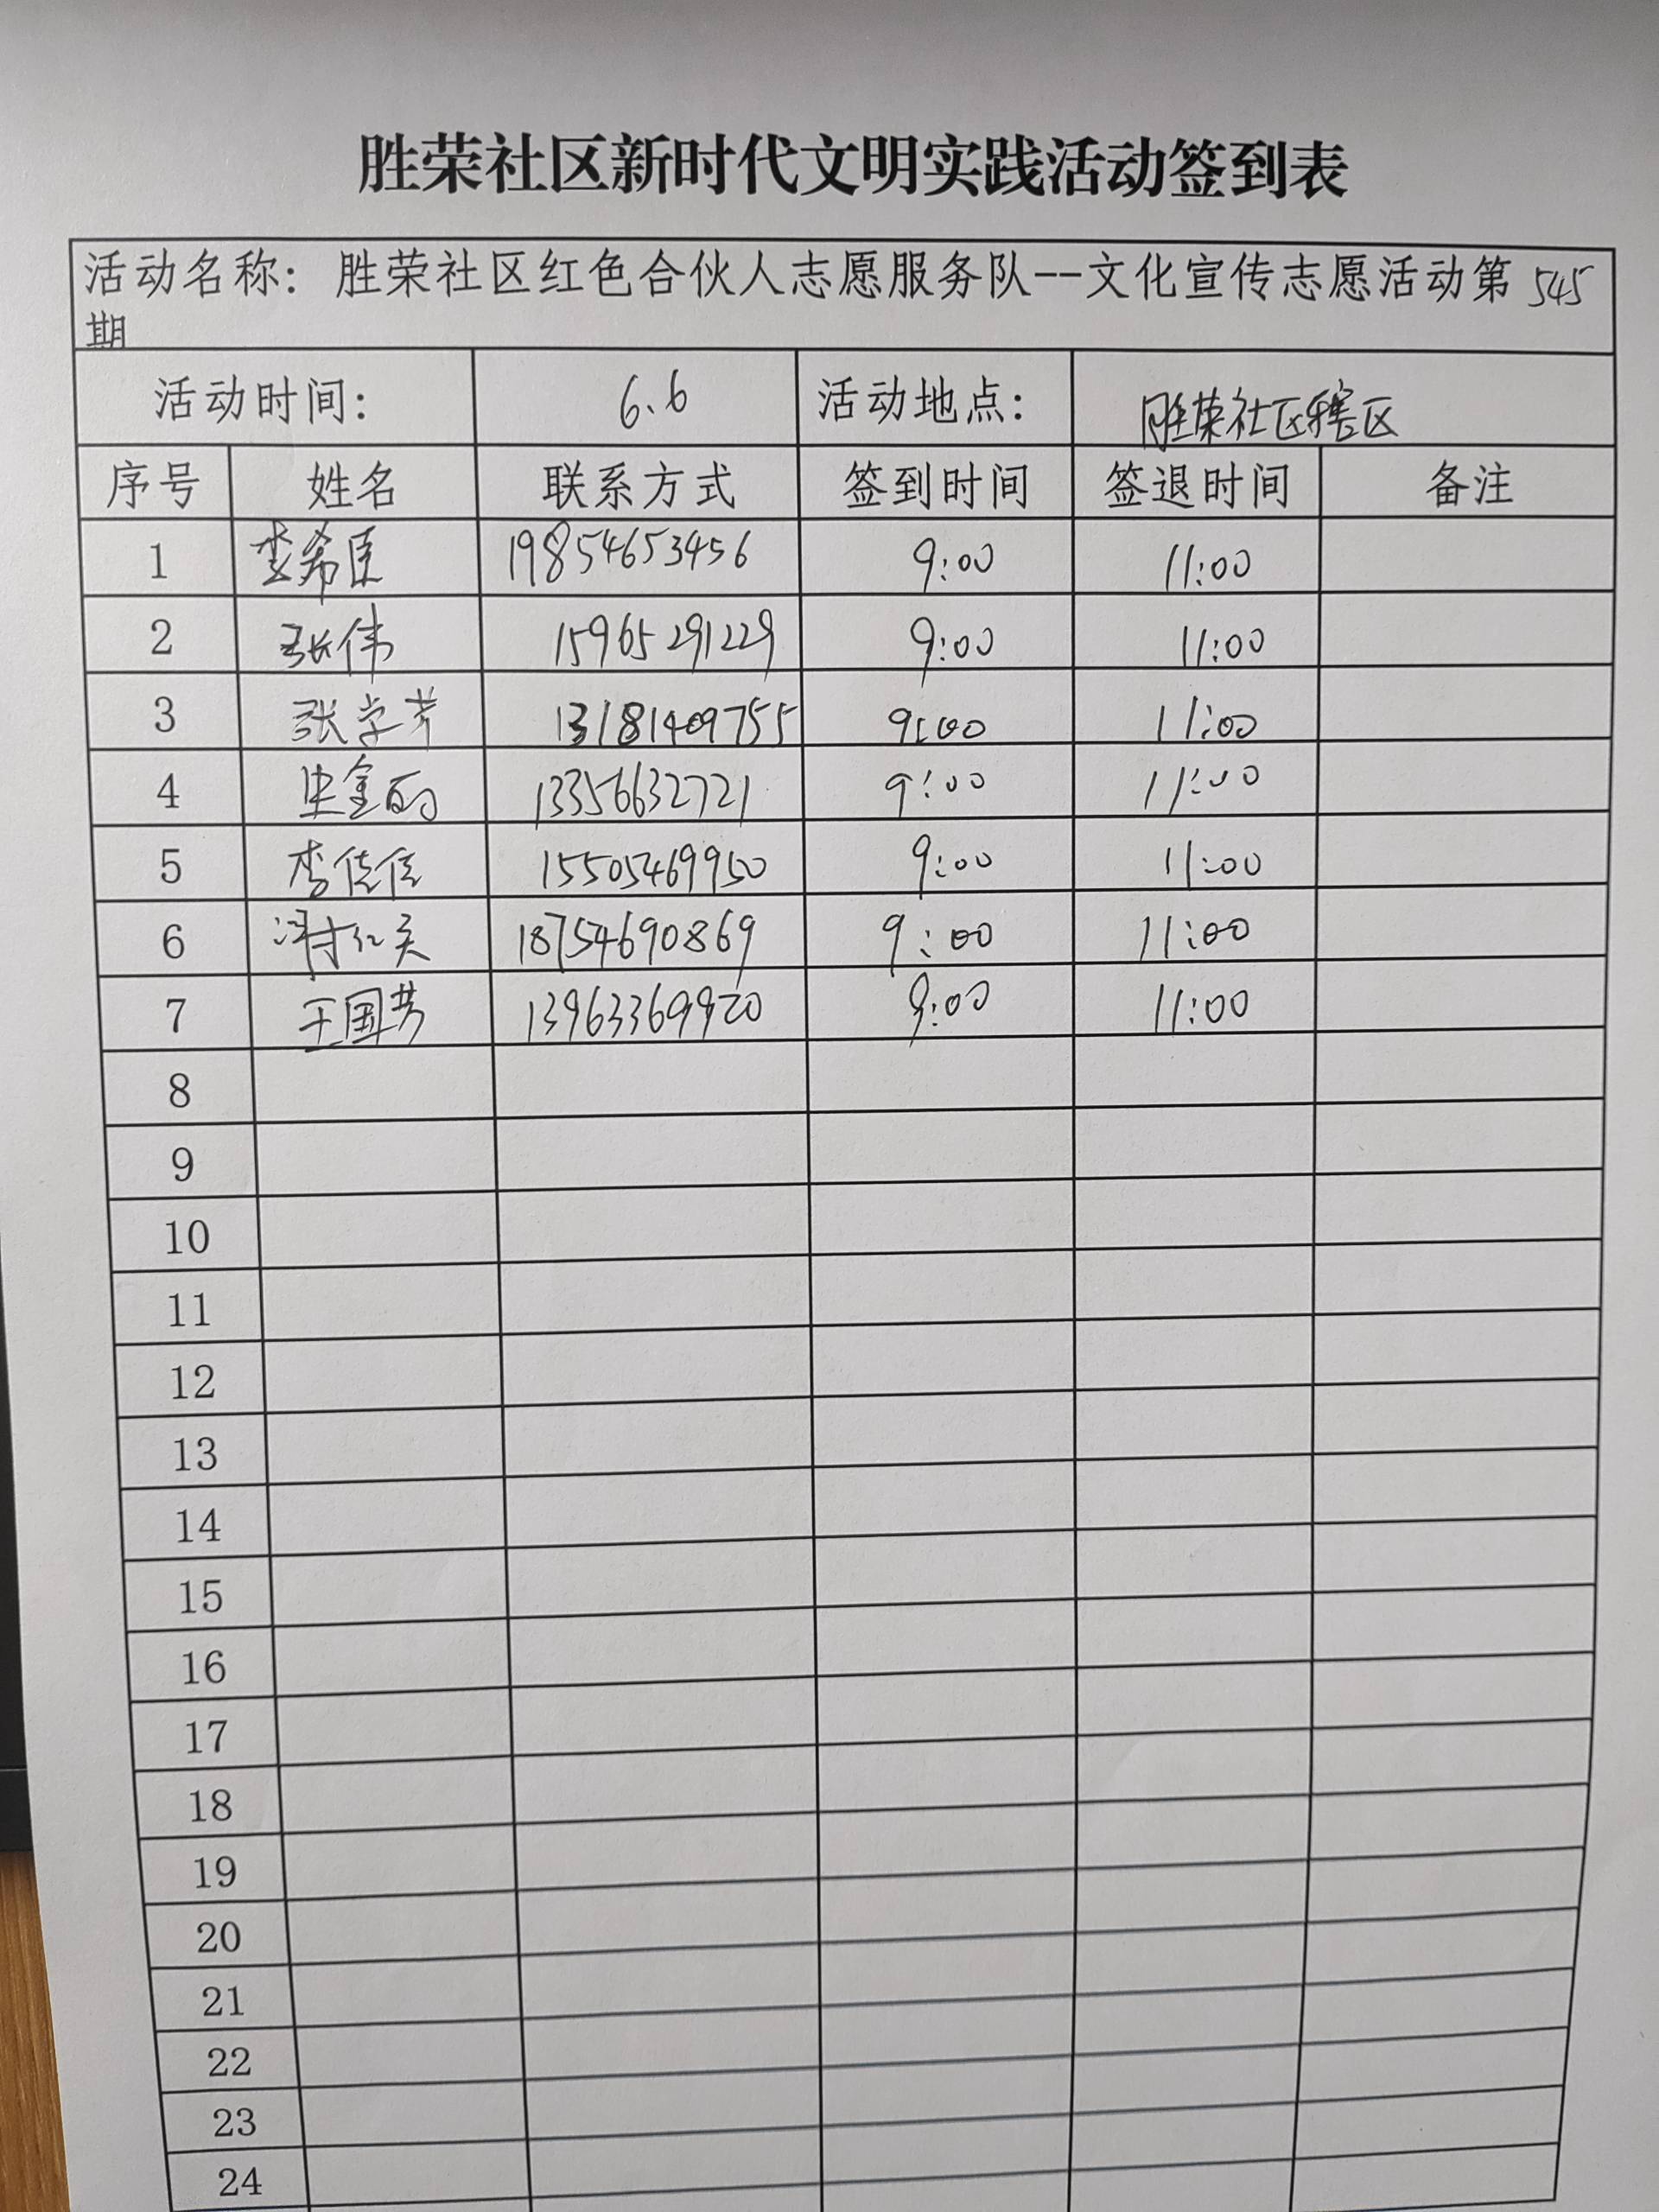 胜荣社区新时代文明实践活动签到表
活动名称：胜荣社区红色合伙人志愿服务队--文化宣传志愿活动第 545
期
活动时间： 6.6 活动地点： 胜荣社区辖区
序号 姓名 联系方式 签到时间 签退时间 备注
1 李希臣 19854653456 9:00 11:00
2 张伟 15965291229 9:00 11:00
3 张学芳 13181409755 9:00 11:00
4 13356632721 9:00 11:00
5 李佳佳 15505469950 9:00 11:00
6 18754690869 9:00 11:00
7 王国芳 13963369920 9:00 11:00
8
9
10
11
12
13
14
15
16
17
18
19
20
21
22
23
24